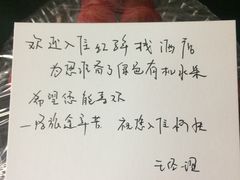 欢迎入住红驿栈酒店
为您准备了绿色有机水果
希望您能喜欢
一路旅途辛苦 祝您入住愉快
王经理